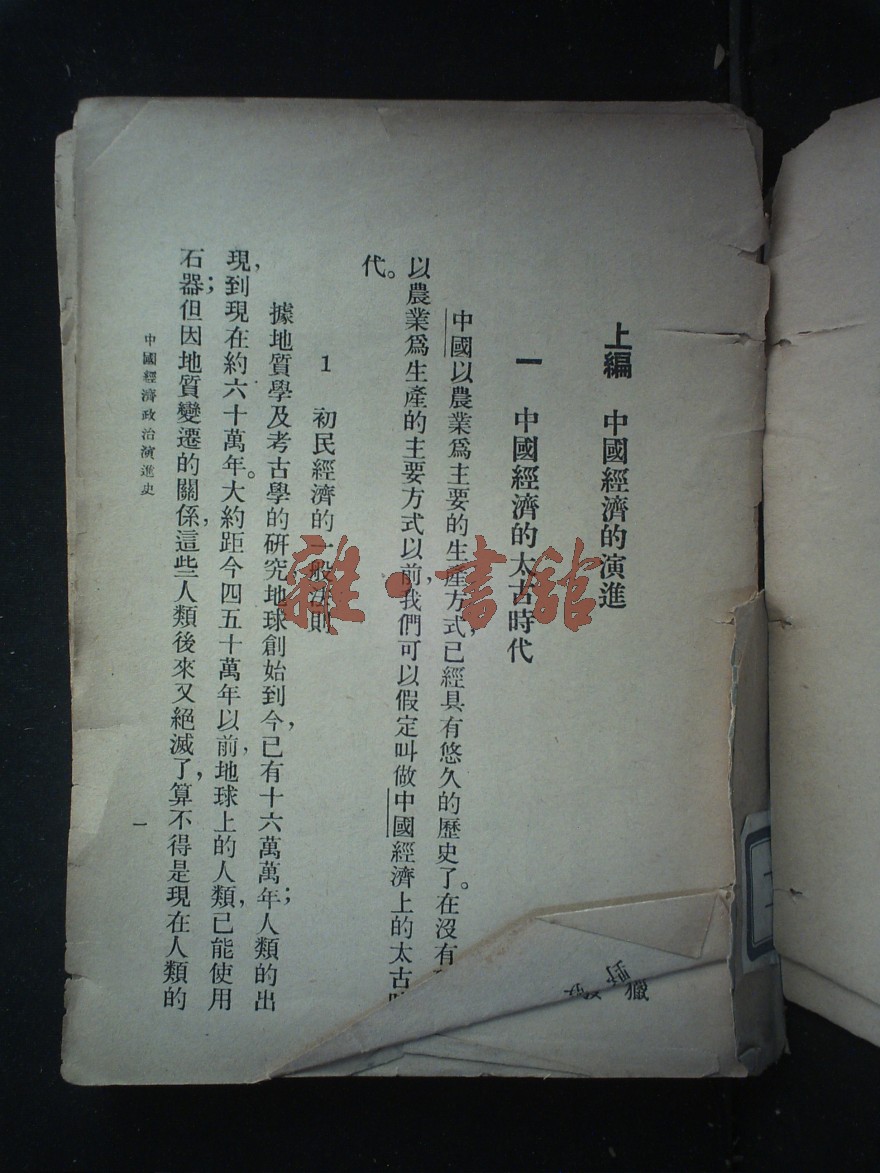 上編　中國經濟的演進
一　中國經濟的太古時代
中國以農業爲主要的生產方式，已經具有悠久的歷史了。在沒有
以農業爲生產的主要方式以前，我們可以假定叫做中國經濟上的太古時
代。
1　初民經濟的一般法則
據地質學及考古學的研究地球創始到今，已有十六萬萬年；人類的出
現，到現在約六十萬年。大約距今四五十萬年以前，地球上的人類，已能使用
石器；但因地質變遷的關係，這些人類後來又絕滅了，算不得是現在人類的
中國經濟政治演進史
一
獵
野
雜·書館